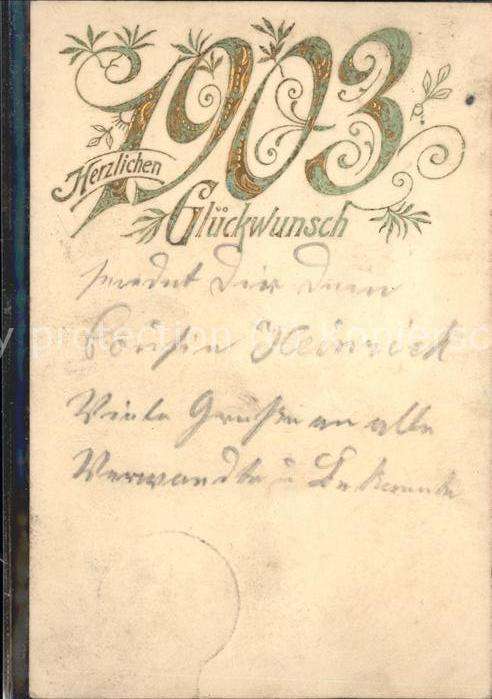 1903
Herzlichen
Glückwunsch
sendet Dir Dein
Cousin Heinrich
Viele Grüße an alle
Verwandte u Bekannte